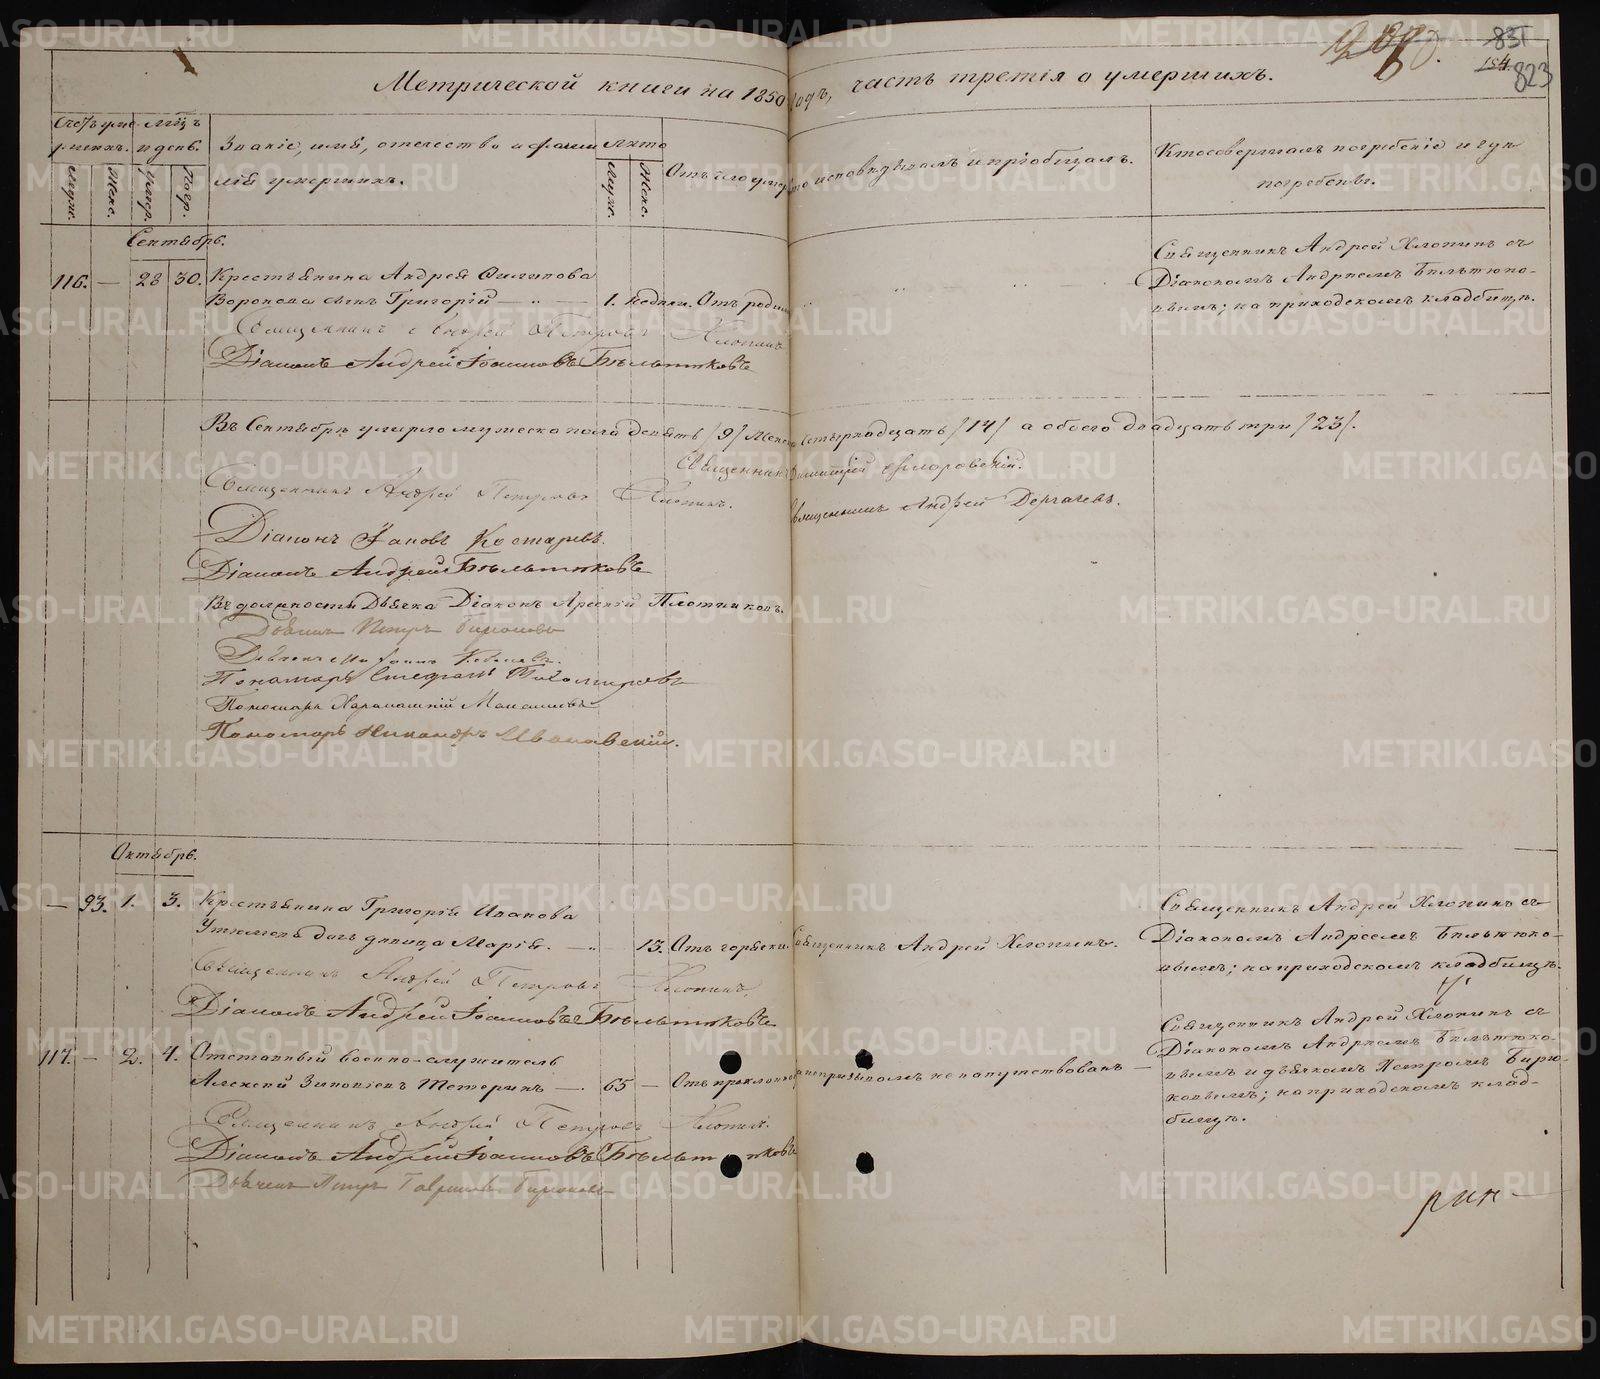 831
154
823
Метрической книги на 1850 годъ, часть третія о умершихъ.
Счетъ умершихъ.
Муж.
Женс.
Мѣсяцъ и день.
Умер.
Погр.
Званіе, имя, отечество и фамилія умершихъ.
Лѣта
Муж.
Женс.
Отъ чего умеръ
Кто исповѣдывалъ и пріобщалъ.
Кто совершалъ погребеніе и гдѣ погребены.
Сентябрь.
116. — 28 30. Крестьянина Андрея Филипова
Воронова сынъ Григорій — 1. недѣли. Отъ родим
Священникъ Андрей Хлопинъ съ
Діакономъ Андреемъ Бѣльтюко-
вымъ; на приходскомъ кладбищѣ.
Священникъ Андрей Петровъ Хлопинъ
Діаконъ Андрей Іоанновъ Бѣльтюковъ
Въ Сентябрѣ умерло мужеска пола девять /9/ женска четырнадцать /14/ а обоего двадцать три /23/.
Священникъ Димитрій Флоровскій.
Священникъ Андрей Петровъ Хлопинъ.
Священникъ Андрей Дергачевъ.
Діаконъ Іаковъ Костаревъ.
Діаконъ Андрей Бѣльтюковъ
Въ должности Дьячка Діаконъ Арсеній Плотниковъ.
Дьячекъ Петръ Бирюковъ
Пономарь Стефанъ Тихомировъ
Пономарь Никандръ Ивановскій.
Октябрь.
— 93. 1. 3. Крестьянина Григорія Иванова
Утюмова дочь дѣвица Марія. — 13. Отъ горячки. Священникъ Андрей Хлопинъ.
Священникъ Андрей Хлопинъ съ
Діакономъ Андреемъ Бѣльтюко-
вымъ; на приходскомъ кладбищѣ.
Священникъ Андрей Петровъ Хлопинъ.
Діаконъ Андрей Іоанновъ Бѣльтюковъ
117. — 2. 4. Отставный военно-служитель
Алексей Зиновіевъ Тетеринъ — 65 —
не напутствованъ —
Священникъ Андрей Хлопинъ съ
Діакономъ Андреемъ Бѣльтюко-
вымъ и дьячкомъ Петромъ Бирю-
ковымъ; на приходскомъ клад-
бищѣ.
Священникъ Андрей Петровъ Хлопинъ.
Діаконъ Андрей Іоанновъ Бѣльтюковъ
Дьячекъ Петръ Гавриловъ Бирюковъ
рин-
METRIKI.GASO-URAL.RU